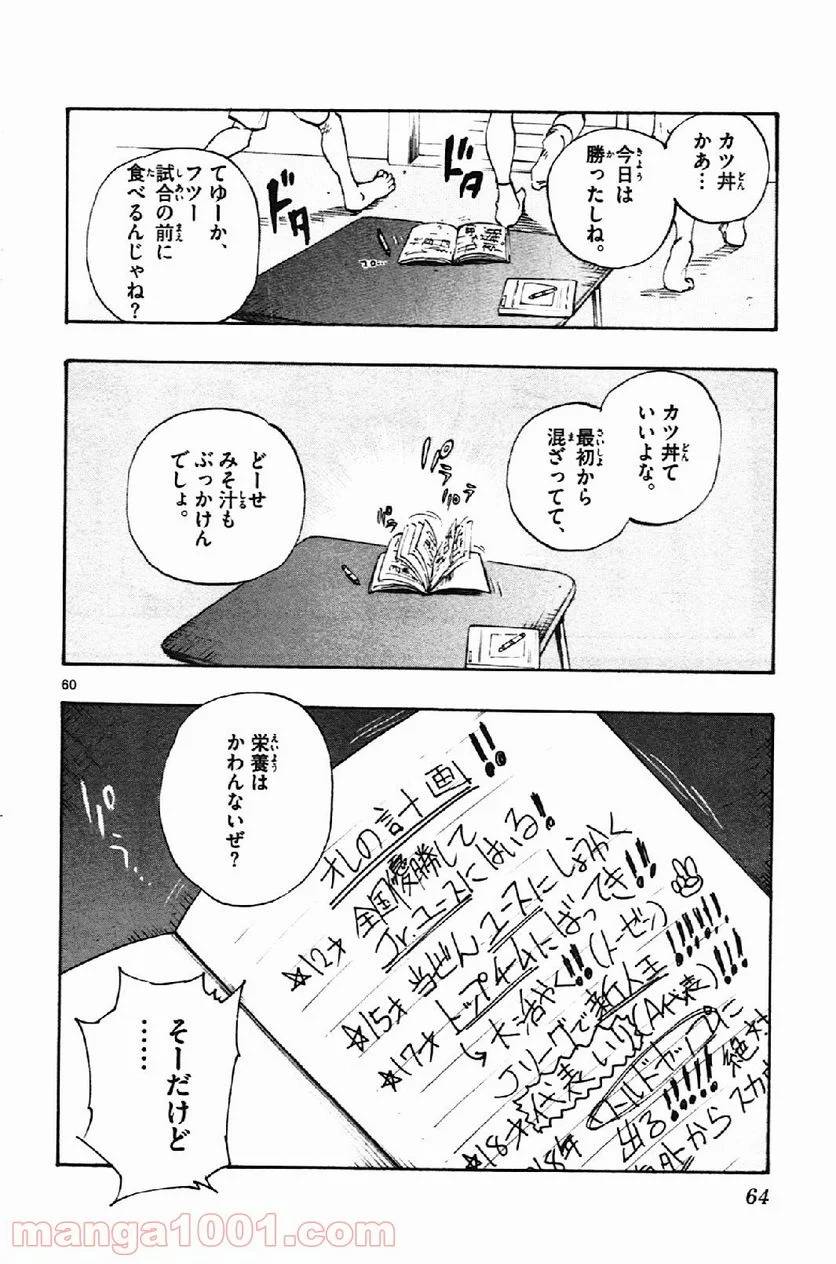 カツ丼
かあ…
今日は
勝ったしね。
てゆーか、
フツー
試合の前に
食べるんじゃね?
ドタ
ドタ
コロ…
カツ丼て
いいよな。
最初から
混ざってて、
どーせ
みそ汁も
ぶっかけん
でしょ。
パラ
パラ
パラ
60
栄養は
かわんないぜ?
パラ
オレの計画!!
☆12才 全国優勝して
Jrユースにはいる!
☆15才 当ぜんユースにしょうかく
☆17才 トップチームにばってき!!
↳大活やく!!(トーゼン)
Jリーグで新人王!!!!!!
☆18才 代表いり(A代表)!!!
☆18才 ワールドカップに
出る!!!!! 絶対
海外からスカ
そーだけど
……
64
manga1001.com